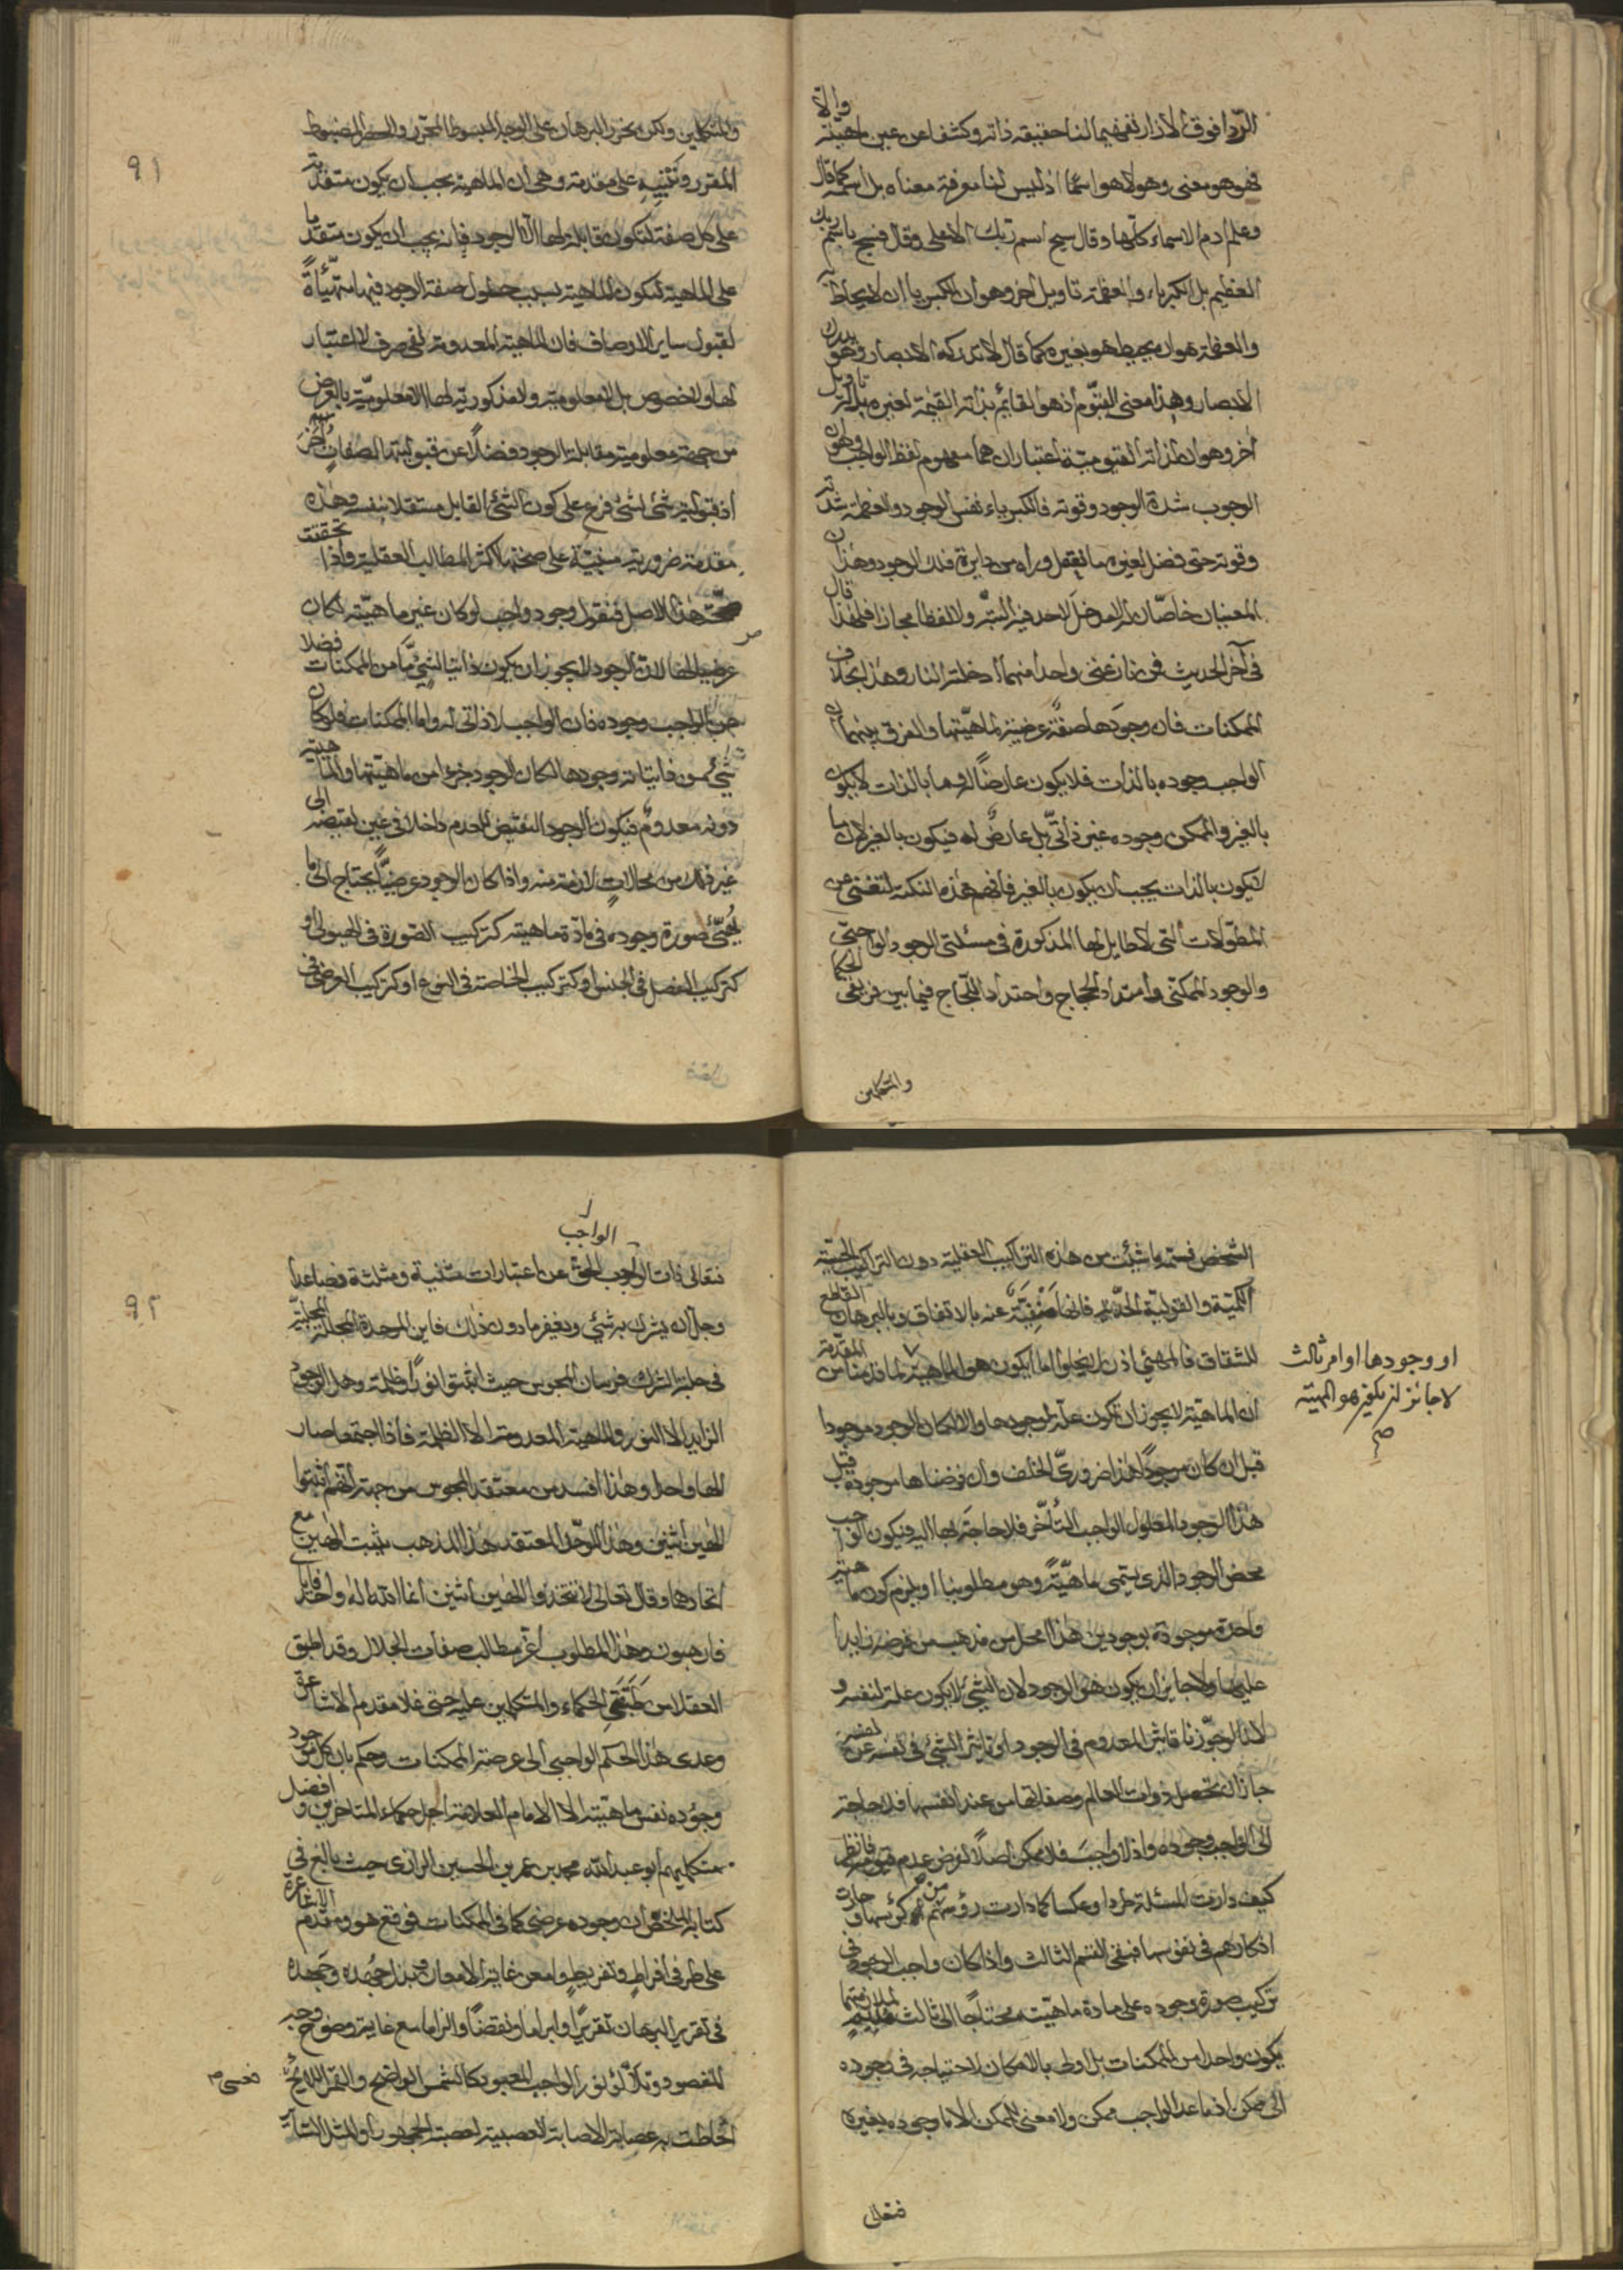 الردا فوق الازار تفهيما لنا حقيقة ذاته وكشفا عن عين ماهيته والا
فهو هو معنى وهو لا هو اسما اذ ليس لنا معرفة معناه بل اسمه كما قال
وعلم ادم الاسماء كلها وقال سبح اسم ربك الاعلى وقال فسبح باسم ربك
العظيم بل الكبرياء والعظمة تاويل اخر وهو ان الكبرياء ان لا يحاط به
والعظمة هو ان يحيط هو بغيره كما قال لا تدركه الابصار وهو يدرك
الابصار وهذا معنى القيوم اذ هو القائم بذاته القيمة لغيره بل له تاويل
اخر وهو ان لذاته القيومية اعتباران هما مفهوم لفظ الواجب وهو ان
الوجوب شدة الوجود وقوته فالكبرياء نفس الوجود والعظمة شدته
وقوته حتى فضل لغيره ما تعقل وراه من دايرة فلك الوجود وهذان
المعنيان خاصان له لا مدخل لاحد فيه البتة ولا لفظا مجازا فلهذا قال
في آخر الحديث فمن نازعني واحدا منهما ادخلته النار وهذا بخلاف
الممكنات فان وجودها صفة عرضية لماهيتها والفرق بينهما ان
الواجب وجوده بالذات فلا يكون عارضا له وما بالذات لا يكون
بالغير والممكن وجوده غير ذاتي بل عارض له فيكون بالغير لان ما
لا يكون بالذات يجب ان يكون بالغير فافهم هذه النكتة لتغني عن
المطولات التي لا طايل لها المذكورة في مسئلتي الوجود الواجبي
والوجود الممكني وامتداد الحجاج واحتداد اللجاج فيما بين فريقي الحكما
والمتكلمين
٩١
والمتكلمين ولكن نحرر البرهان على الوجه المبسوط المحرر والحصر المضبوط
المقرر ونبنيه على مقدمة وهي ان الماهية يجب ان يكون متقدمة
على كل صفة لتكون قابلة لها الا الوجود فانه يجب ان يكون متقدما
على الماهية لتكون الماهية بسبب حصول صفة الوجود فيها متهيأة
لقبول ساير الاوصاف فان الماهية المعدومة نفي صرف لا اعتبار
لها ولا خصوص بل لا معلومية ولا مذكورية لها الا معلومية بالعرض
من جهة معلومية مقابلة الوجود فضلا عن قبوليتها لصفات أخر
اذ قبولية شئ لشئ فرع على كون الشئ القابل مستقلا بنفسه وهذه
مقدمة ضرورية مبنية على صحتها اكثر المطالب العقلية واذا تحققت
صحة هذا الاصل فنقول وجود واجب لو كان غير ماهيته لكان
عرضيا لها لان الوجود لا يجوز ان يكون ذاتيا لشئ ما من الممكنات فضلا
عن الواجب وجوده فان الواجب لا ذاتي له واما الممكنات فلو كان
شئ من ذاتياته وجودها لكان الوجود جزءا من ماهيتها والماهية
دونه معدوم فيكون الوجود النقيض للعدم داخلا في عين نقيضه الى
غير ذلك من محالات لازمة منه واذا كان الوجود عرضيا يحتاج الى ما
يهيئ صورة وجوده في مادة ماهيته كتركيب الصورة في الهيولى او
كتركيب الفصل في الجنس او كتركيب الخاصة في النوع او كتركيب العرض في
الشخص فسمه ما شئت من هذه التراكيب العقلية دون التراكيب الحسية
الكمية والقولية الحدية فانها منفية عنه بالاتفاق وبالبرهان القاطع
للشقاق فالمهيئ اذن لا يخلوا اما ان يكون هو الماهية لما قدمنا من المقدمة
او وجودها او امر ثالث
لا جائز ان يكون هو المهية
صح
ان الماهية لا يجوز ان تكون علة لوجودها والا لكان الوجود موجودا
قبل ان كان موجودا هذا ضروري الخلف وان فرضناها موجودة قبل
هذا الوجود المعلول الواجب التأخر فلا حاجة لها اليه فيكون الواجب
محض الوجود الذي يسمى ماهية وهو مطلوبنا او يلزم كون ماهيته
واحدة موجودة بوجودين هذا محال من مذهب من فرضه زايدا
عليها ولا جايز ان يكون هو الوجود لان الشئ لا يكون علة لنفسه و
لانا لو جوزنا تاثير المعدوم في الوجود او تاثير الشئ في نفسه عن نفسه
جاز ان تحصل ذوات العالم وصفاتها من عند انفسها فلا حاجة
الى الواجب وجوده واذا لا واجب فلا ممكن اصلا لفرض عدم قيومه فانظر
كيف دارت المسئلة طردا وعكسا كما دارت رؤسهم من كؤسها وحارت
افكارهم في نفوسها فبقي القسم الثالث واذا كان واجب الوجود في
تركيب صورة وجوده على مادة ماهيته محتاجا الى ثالث لملازمتها
يكون واحدا من الممكنات بل اولى بالامكان لاحتياجه في وجوده
الى ممكن اذ ما عدا الواجب ممكن ولا معنى للممكن الا ما وجوده بغيره
فتعالى
٩٢
الواجب
فتعالى ذات الواجب الحق عن اعتبارات مثنية ومثلثة فصاعدا
وجل ان يشرك به شئ ويغفر ما دون ذلك فاين الموحدة المجلية
في حلبة الشرك فرسان المجوس حيث اثبتوا نورا وظلمة وهل الوجود
الزايد الا النور والماهية المعدومة الا الظلمة فاذا اجتمعا صار
الها واحدا وهذا افسد من معتقد المجوس من جهة انهم اثبتوا
الهين اثنين وهذا الموحد المعتقد هذا المذهب يثبت الهين مع
اتحادها وقال تعالى لا تتخذوا الهين اثنين انما الله اله واحد فاياي
فارهبون وهذا المطلوب أعز مطالب صفات الجلال وقد اطبق
العقلا من طبقتي الحكماء والمتكلمين عليه حتى غلا مقدم الاشاعرة
وعدى هذا الحكم الواجبي الى عرصة الممكنات وحكم بان كل موجود
وجوده نفس ماهيته الا الامام العلامة اجل حكماء المتاخرين وافضل
متكلميهم ابو عبد الله محمد بن عمر بن الحسين الرازي حيث بالغ في
كتابه الملخص ان وجوده عرضي كما في الممكنات فوقع هو ومقدم الاشاعرة
على طرفي افراط وتفريط وامعن غاية الامعان وبذل جهده وجهده
في تقرير البرهان تقريرا وابراما ونقضا والزاما مع غاية وضوح وجه
المقصود وتلألؤ نور الواجب المعبود كالشمس الواضح والقمر اللايح
احاطت به عصابة الاصابة العصبية لعصبة الجمهور